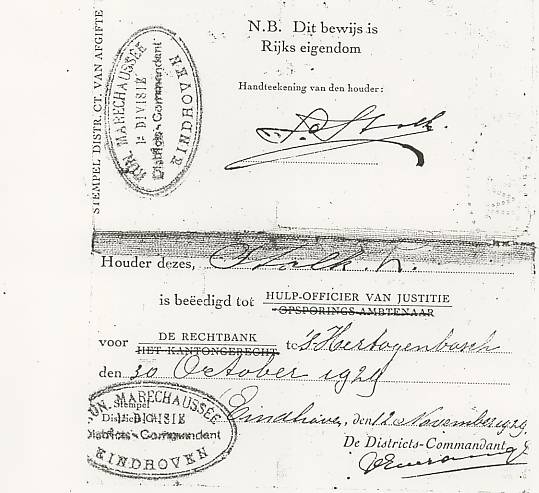 N.B. Dit bewijs is
Rijks eigendom
STEMPEL DISTR. CT. VAN AFGIFTE
KON. MARECHAUSSEE
1e DIVISIE
Districts-Commandant
EINDHOVEN
Handteekening van den houder:
Stolk.
Houder dezes, Stolk. K.
is beëedigd tot HULP-OFFICIER VAN JUSTITIE
OPSPORINGS-AMBTENAAR
voor DE RECHTBANK te 's Hertogenbosch
HET KANTONGERECHT
den 30 October 1929
KON. MARECHAUSSEE
Stempel
1e DIVISIE
Districts-Commandant
EINDHOVEN
Eindhoven, den 12 November 1929.
De Districts-Commandant